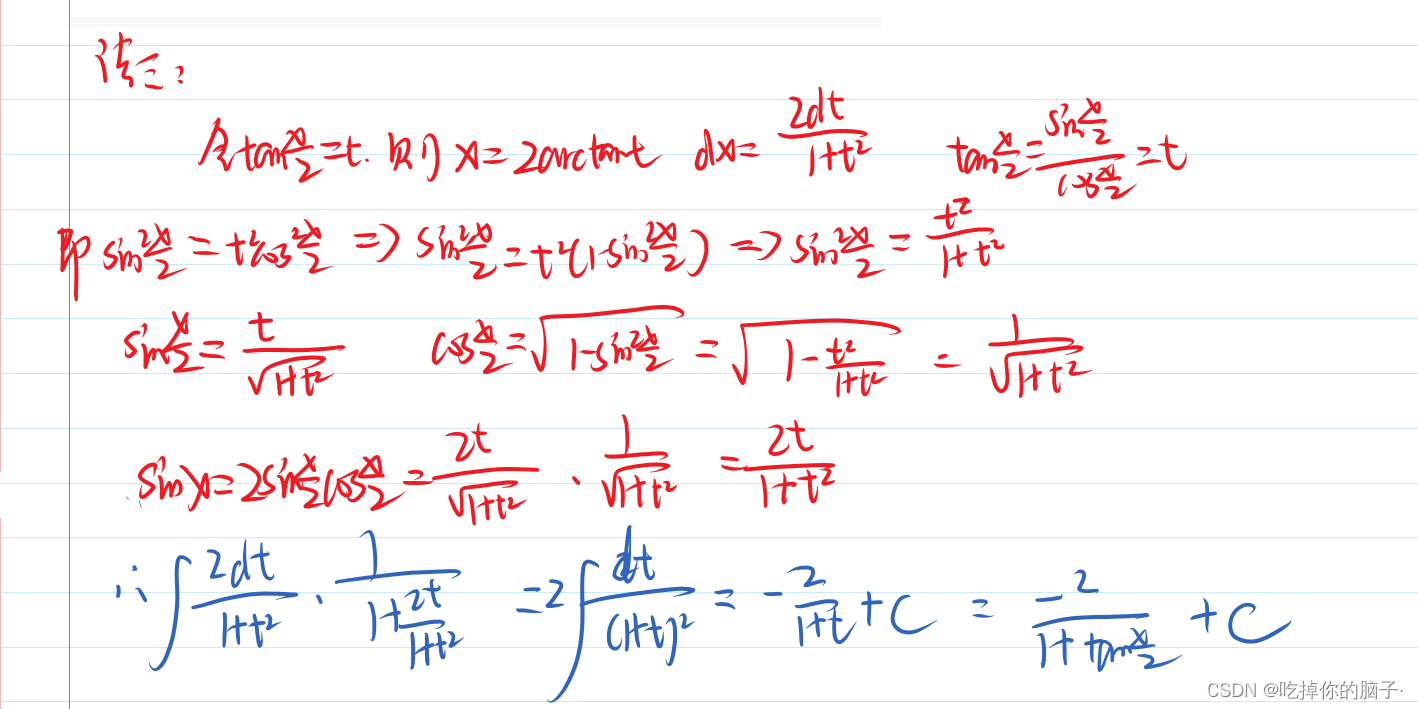 法三:
令tan x/2 = t. 则 x = 2arctant dx = 2dt/(1+t²) tan x/2 = (sin x/2)/(cos x/2) = t
即 sin² x/2 = t²cos² x/2 => sin² x/2 = t²(1-sin² x/2) => sin² x/2 = t²/(1+t²)
sin x/2 = t/√(1+t²) cos x/2 = √(1-sin² x/2) = √(1 - t²/(1+t²)) = 1/√(1+t²)
sinx = 2sin x/2 cos x/2 = 2t/√(1+t²) · 1/√(1+t²) = 2t/(1+t²)
∴ ∫ 2dt/(1+t²) · 1/(1+ 2t/(1+t²)) = 2∫ dt/(1+t)² = - 2/(1+t) + C = -2/(1+tan x/2) + C
CSDN @吃掉你的脑子·